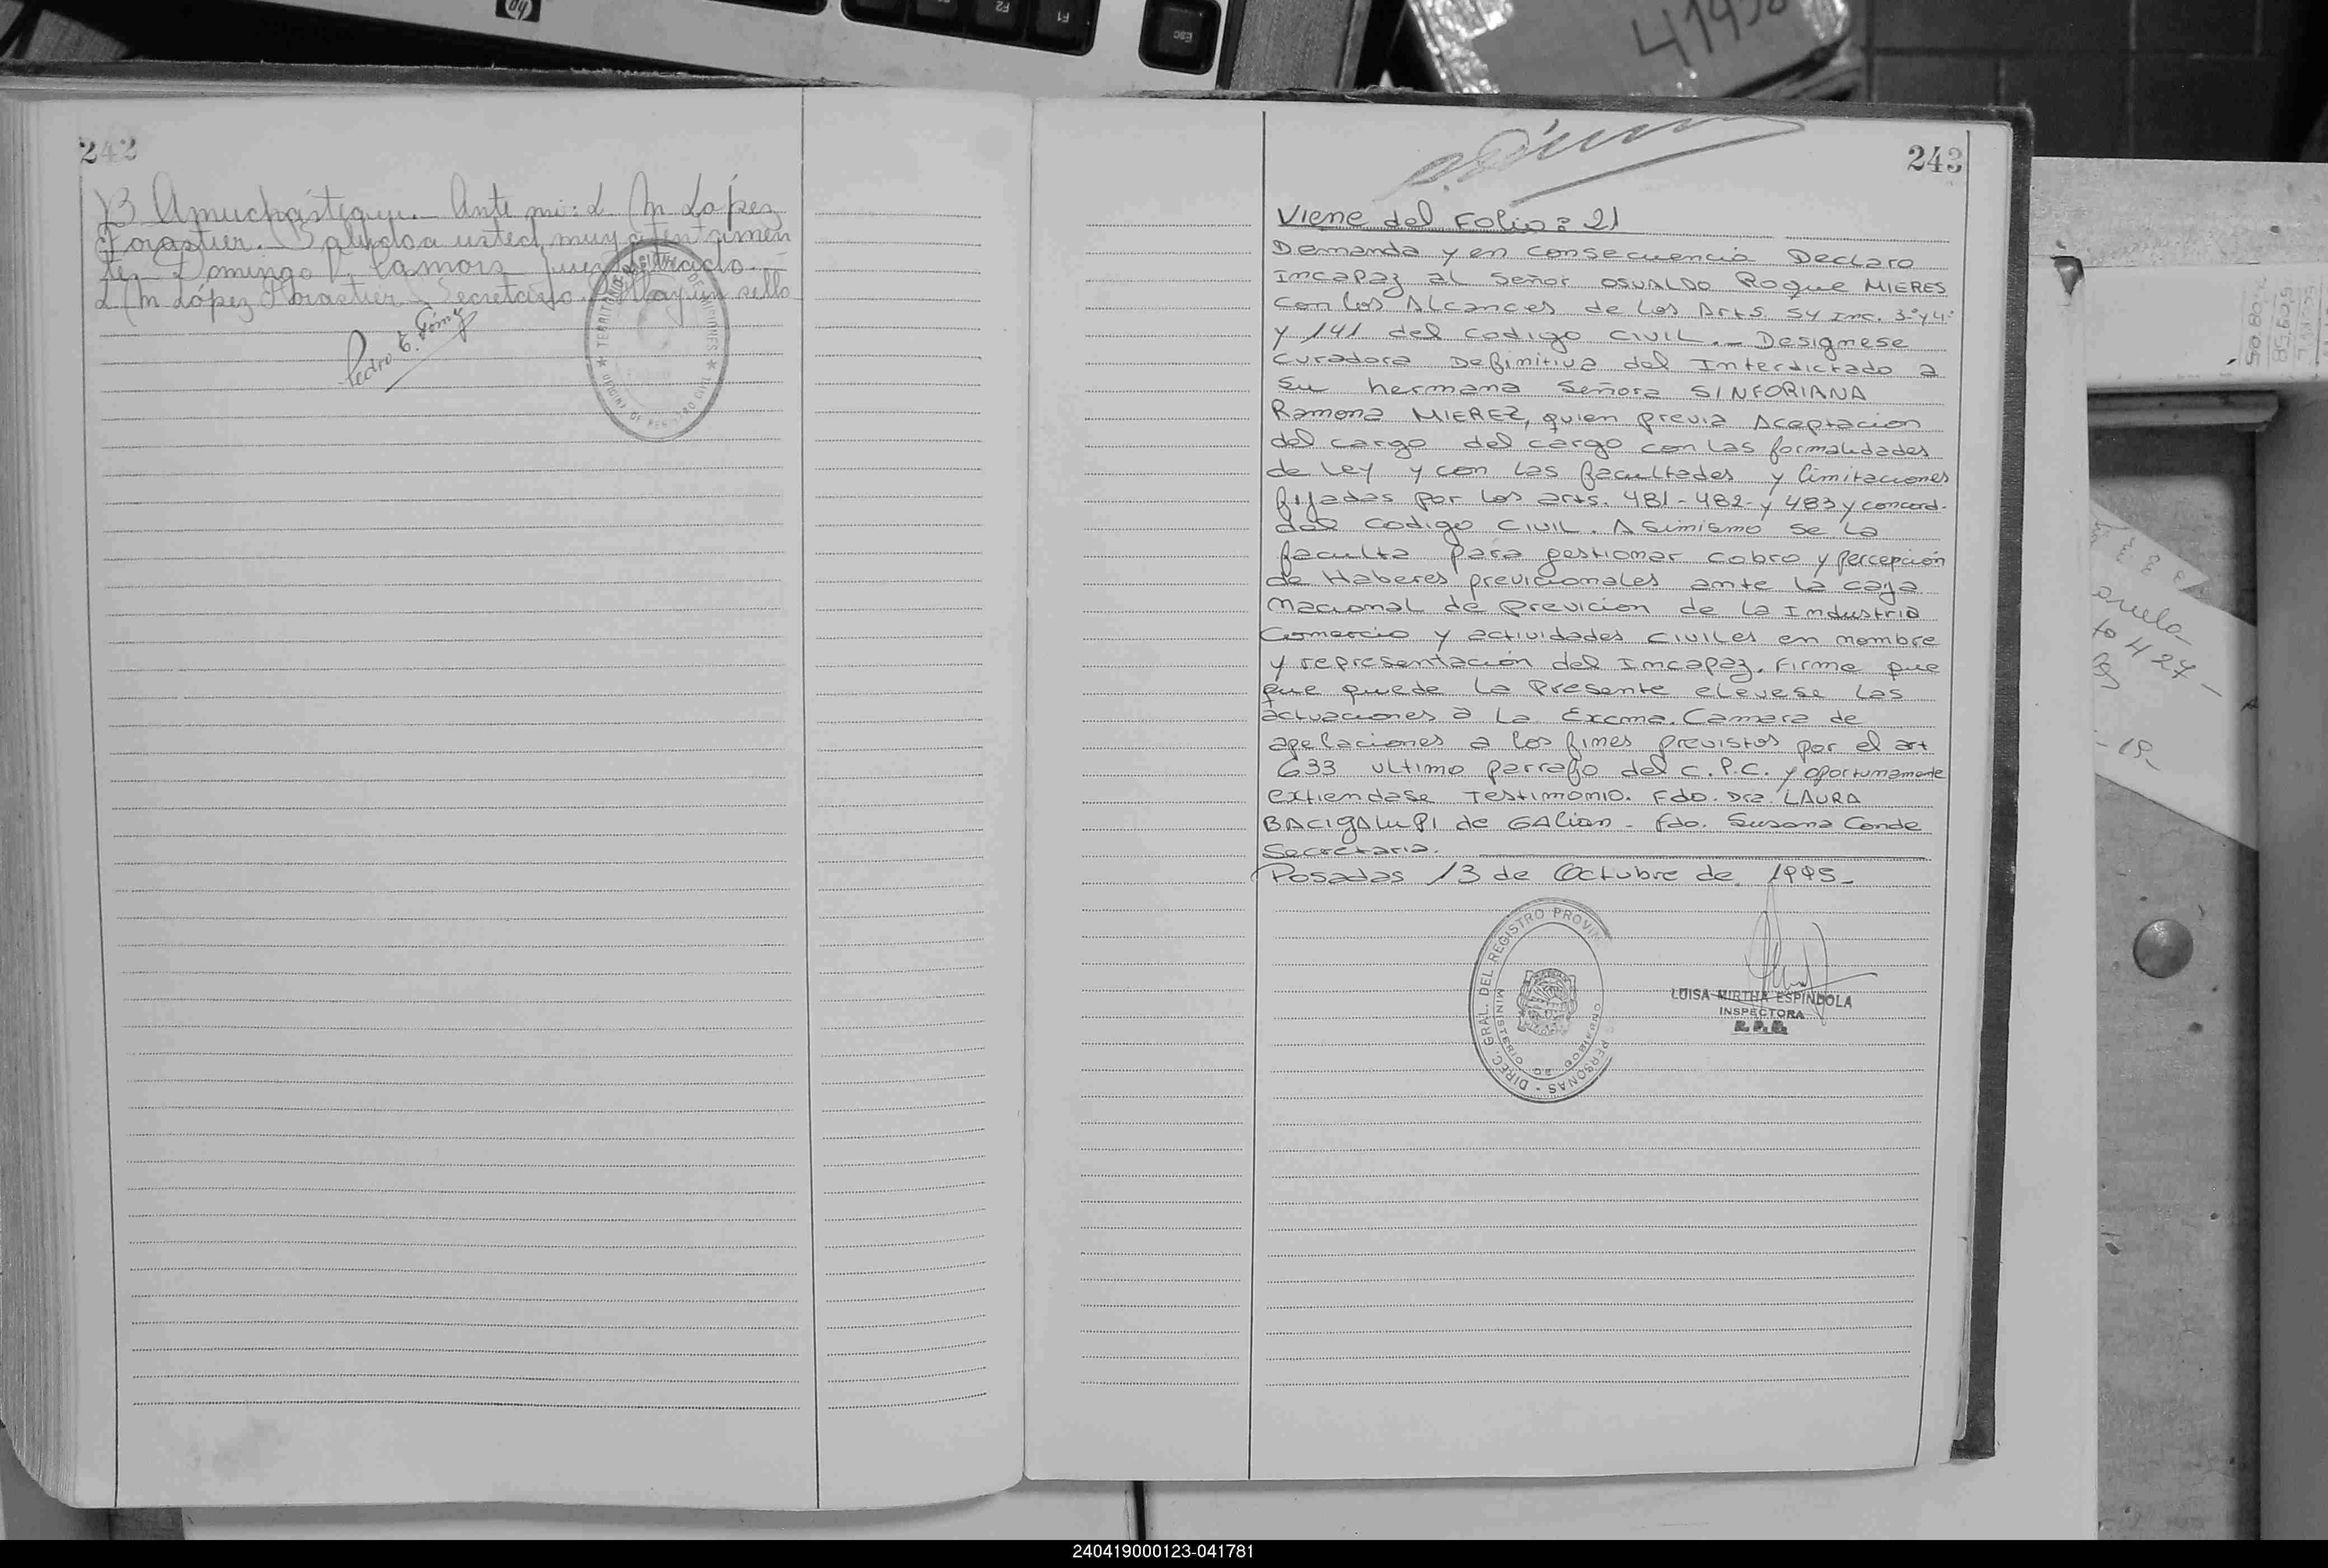 242
B Amuchástegui.- Ante mi: L. M. López
Forastier.- Saludo a usted muy atentamen
te.- Domingo Camors Juez Letrado.-
L. M. López Forastier Secretario. Hay un sello
Pedro E. Gómez
243
Viene del Folio: 21
Demanda y en consecuencia Declaro
Incapaz al Señor OSVALDO Roque MIERES
con los Alcances de Los Arts. 54 Inc. 3º y 4º
y 141 del Codigo CIVIL.- Designese
Curadora Definitiva del Interdictado a
su hermana Señora SINFORIANA
Ramona MIEREZ, quien previa Aceptacion
del cargo del cargo con las formalidades
de Ley y con las facultades y limitaciones
fijadas por los arts. 481-482- y 483 y concord.
del Codigo CIVIL. Asimismo se la
faculta para gestionar cobro y percepción
de Haberes previcionales ante la caja
Nacional de Previcion de la Industria
Comercio y actividades civiles en nombre
y representación del Incapaz. Firme que
que quede la Presente elevese las
actuaciones a La Excma. Camara de
apelaciones a los fines previstos por el art
633 ultimo parrafo del C.P.C. y oportunamente
extiendase Testimonio. Fdo. Dra. LAURA
BACIGALUPI de GALian - Fdo. Susana Conde
Secretaria.
Posadas 13 de Octubre de 1995-
DIREC. GRAL. DEL REGISTRO PROVIN
PERSONAS
MINISTERIO DE GOBIERNO
LUISA MIRTHA ESPINDOLA
INSPECTORA
R. P. P.
41938
hp
F2
F1
Esc
240419000123-041781